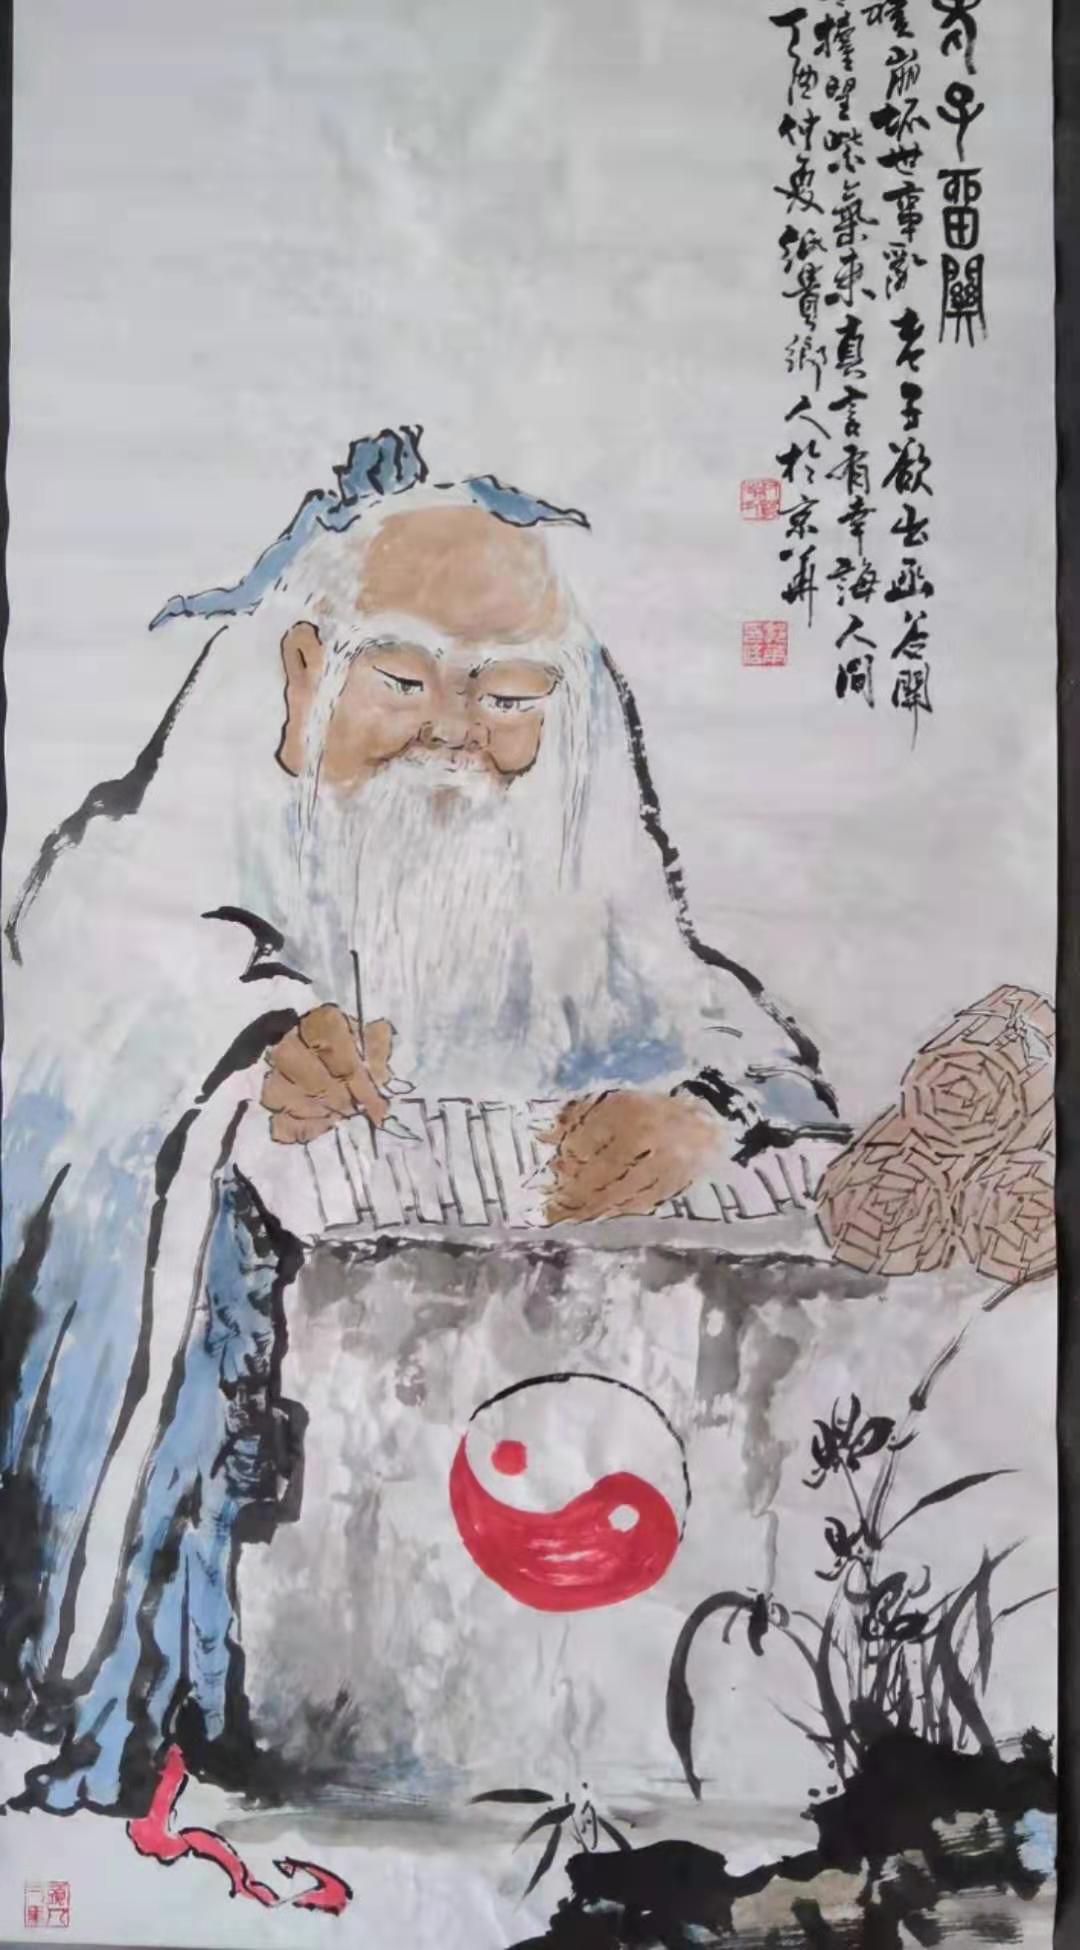 老子留關
崩坏世事亂老子欲出函谷關
望紫氣東來真言有幸誨人間
丁酉仲夏紙貴鄉人於京華